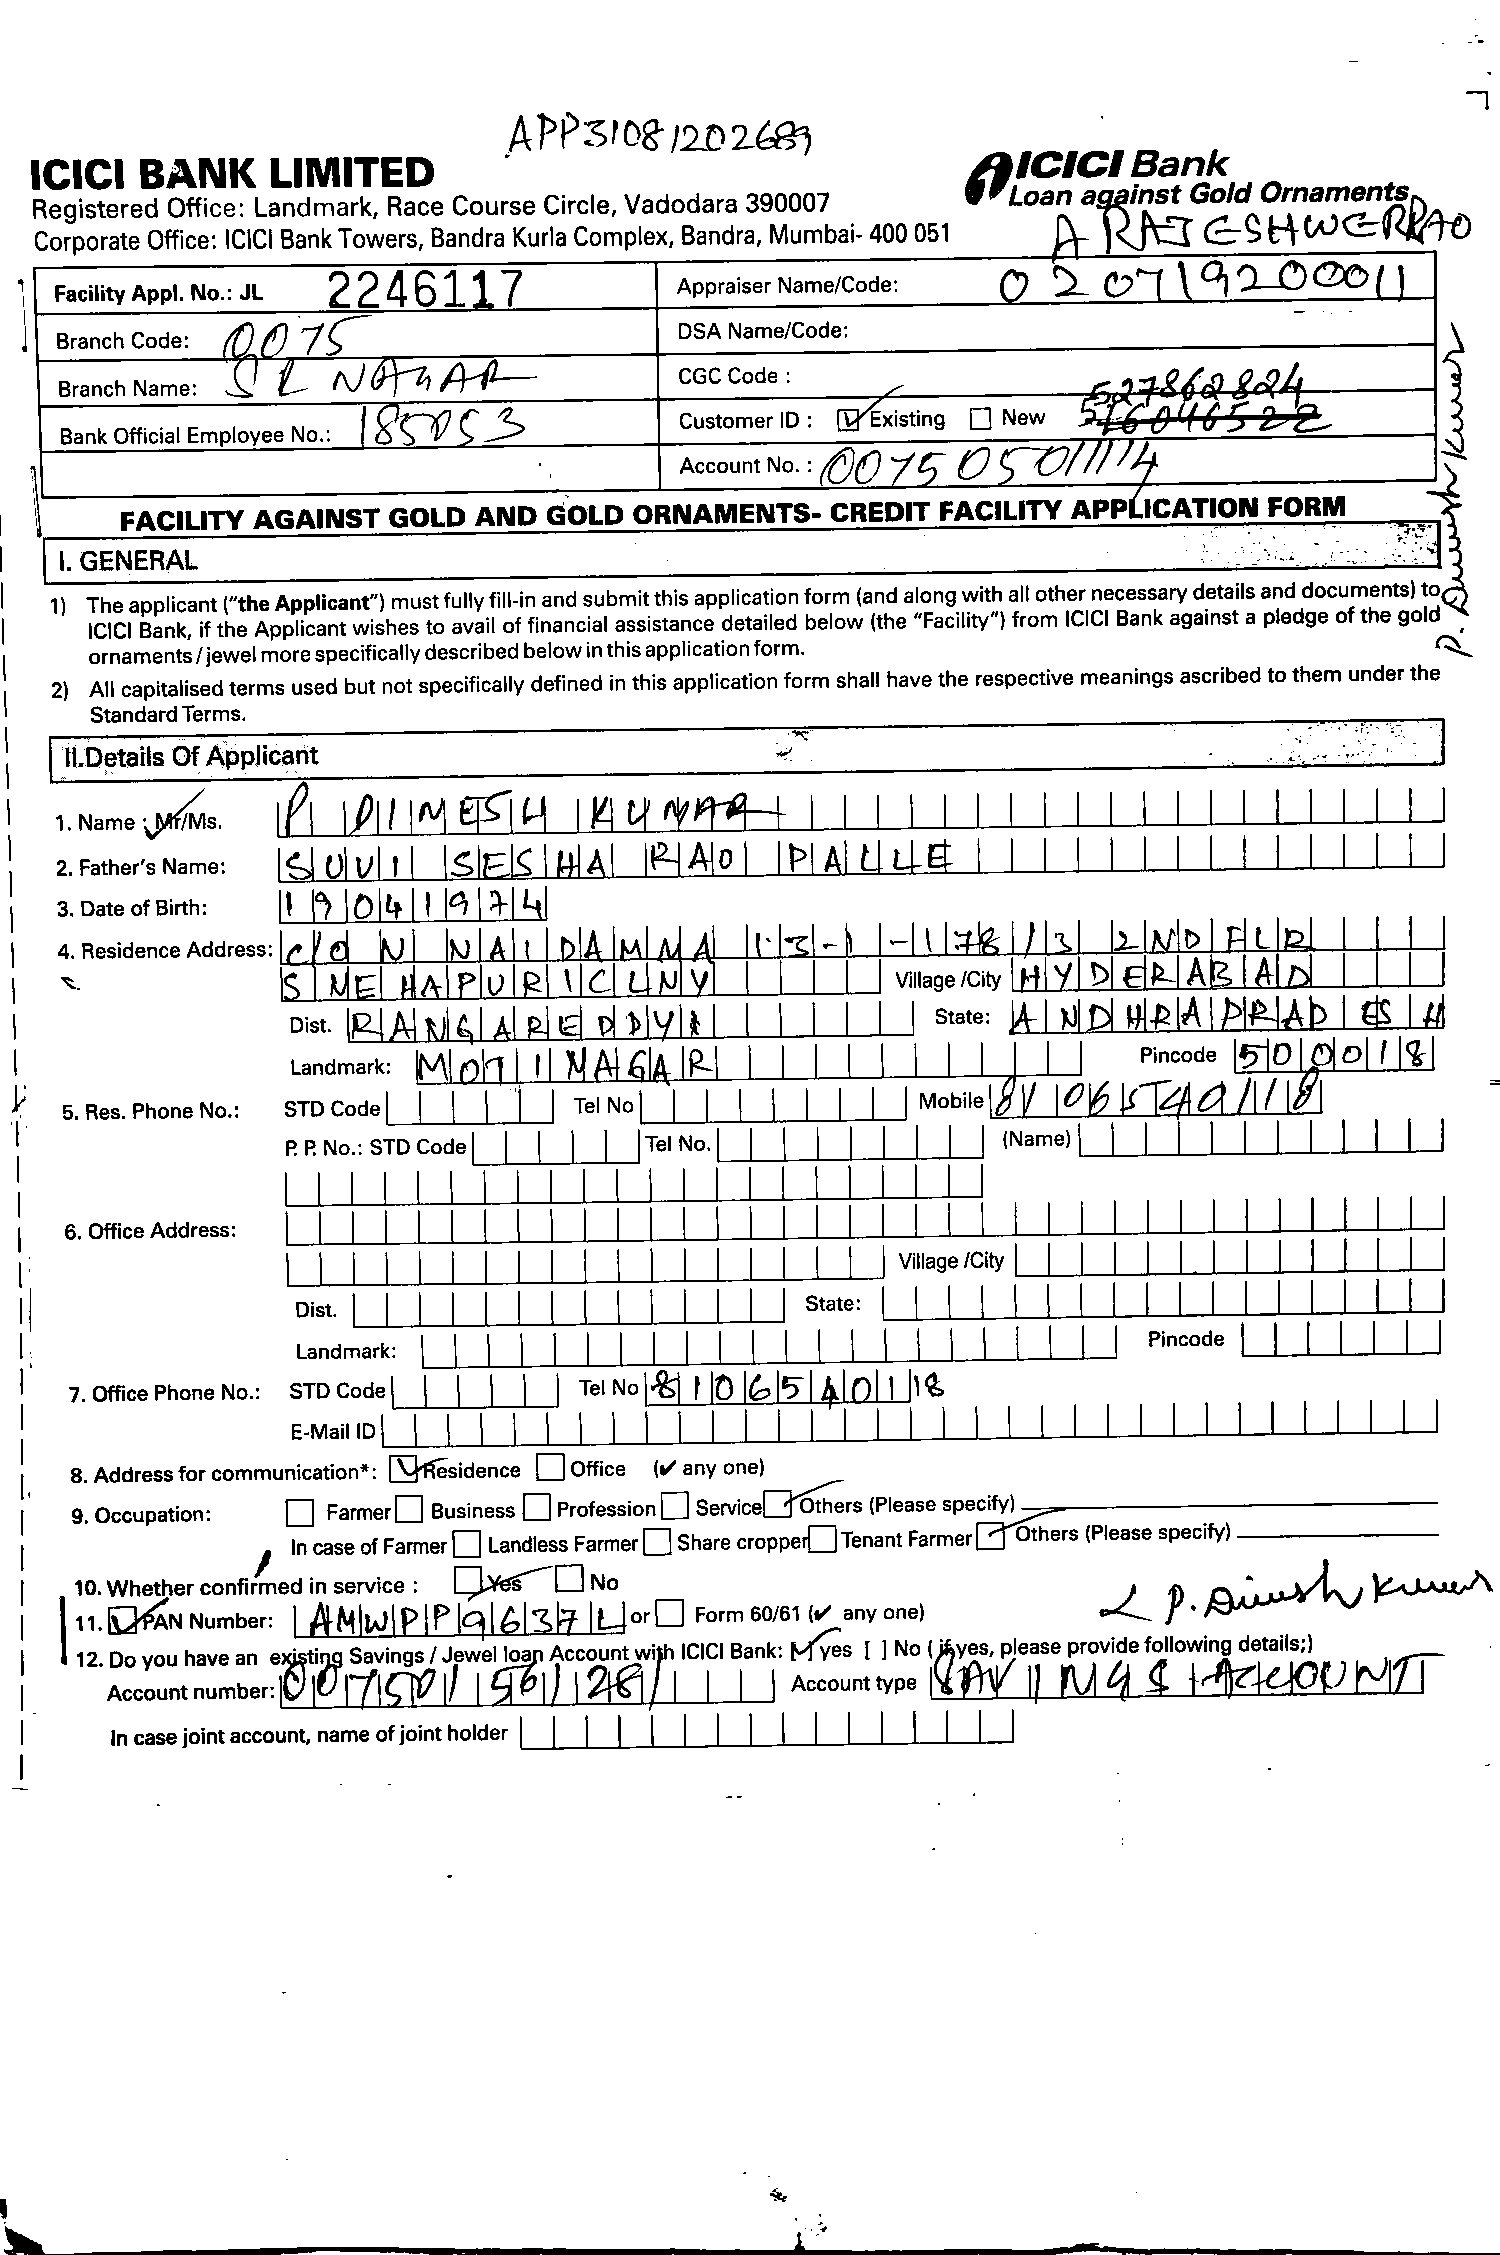 APP31081202689
ICICI BANK LIMITED
Registered Office: Landmark, Race Course Circle, Vadodara 390007
Corporate Office: ICICI Bank Towers, Bandra Kurla Complex, Bandra, Mumbai- 400 051
ICICI Bank
Loan against Gold Ornaments
A RAJESHWERRAO
Facility Appl. No.: JL 2246117
Appraiser Name/Code: 020719200011
Branch Code: 0075
DSA Name/Code:
Branch Name: S R NAGAR
CGC Code :
Bank Official Employee No.: 185053
Customer ID : Existing New 527862824
Account No. : 007505011114
FACILITY AGAINST GOLD AND GOLD ORNAMENTS- CREDIT FACILITY APPLICATION FORM
P. Dinesh Kumar
I. GENERAL
1) The applicant ("the Applicant") must fully fill-in and submit this application form (and along with all other necessary details and documents) to
ICICI Bank, if the Applicant wishes to avail of financial assistance detailed below (the "Facility") from ICICI Bank against a pledge of the gold
ornaments / jewel more specifically described below in this application form.
2) All capitalised terms used but not specifically defined in this application form shall have the respective meanings ascribed to them under the
Standard Terms.
II.Details Of Applicant
1. Name : Mr/Ms. P DINESH KUMAR
2. Father's Name: SUVI SESHA RAO PALLE
3. Date of Birth: 19041974
4. Residence Address: C/O N NAIDAMMA 13-1-178/3 2ND FLR
SNEHAPURI CLNY Village /City HYDERABAD
Dist. RANGAREDDY State: ANDHRAPRADESH
Landmark: MOTI NAGAR Pincode 500018
5. Res. Phone No.: STD Code Tel No Mobile 8106540118
P. P. No.: STD Code Tel No. (Name)
6. Office Address:
Village /City
Dist. State:
Landmark: Pincode
7. Office Phone No.: STD Code Tel No 8106540118
E-Mail ID
8. Address for communication*: Residence Office (✔ any one)
9. Occupation: Farmer Business Profession Service Others (Please specify)
In case of Farmer Landless Farmer Share cropper Tenant Farmer Others (Please specify)
10. Whether confirmed in service : Yes No
P. Dinesh Kumar
11. PAN Number: AMWPP9637L or Form 60/61 (✔ any one)
12. Do you have an existing Savings / Jewel loan Account with ICICI Bank: [✓] yes [ ] No ( if yes, please provide following details;)
Account number: 007501561281 Account type SAVINGS ACCOUNT
In case joint account, name of joint holder